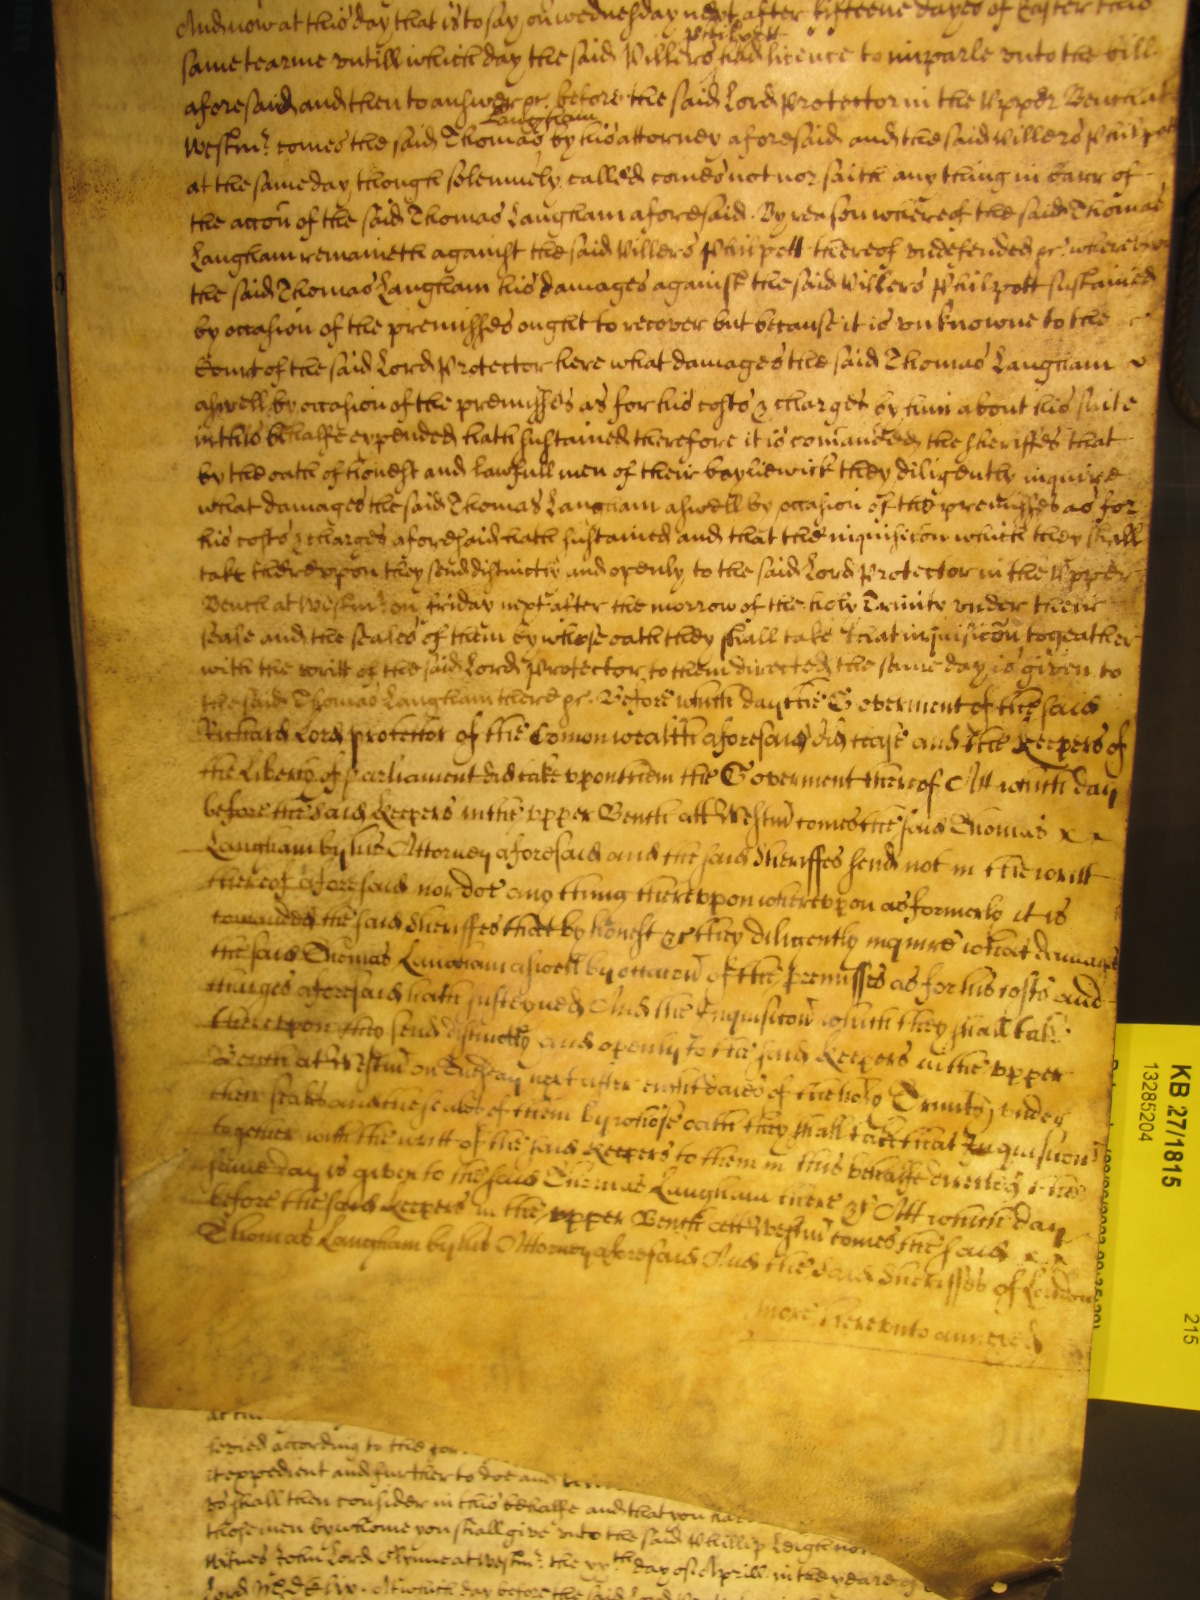 And now at this day that is to say on wednesday next after fifteene dayes of Easter this
same tearme untill which day the said Villers Philpott had licence to imparle unto the bill
aforesaid and then to answer &c. before the said Lord Protector in the Upper Bench at
Westmr. comes the said Thomas Langham by his attorney aforesaid and the said Villers Philpott
at the same day though solemnely called comes not nor saith any thing in barr of
the accon of the said Thomas Langham aforesaid. By reason whereof the said Thomas
Langham remaineth against the said Villers Philpott thereof undefended &c. wherefore
the said Thomas Langham his damages against the said Villers Philpott sustained
by occasion of the premisses ought to recover but because it is unknowne to the
Court of the said Lord Protector here what damages the said Thomas Langham
aswell by occasion of the premisses as for his costs & charges by him about his suite
in this behalfe expended hath sustained therefore it is comanded the sheriffes that
by the oath of honest and lawfull men of their bayliewick they diligently inquire
what damages the said Thomas Langham aswell by occasion of the premisses as for
his costs & charges aforesaid hath sustained and that the inquisicon which they shall
take thereupon they send distinctly and openly to the said Lord Protector in the Upper
Bench at Westmr. on friday next after the morrow of the holy Trinity under their
seale and the seales of them by whose oath they shall take that inquisicon togeather
with the writt of the said Lord Protector to them directed the same day is given to
the said Thomas Langham there &c. Before which day the Goverment of the said
Richard Lord protector of the Comonwealth aforesaid did cease and the Keepers of
the Liberty of parliament did take upon them the Goverment thereof Att which day
before the said Keepers in the upper Bench att Westmr comes the said Thomas x x
Langham by his Attorney aforesaid and the said Sheriffes send not in the writt
thereof aforesaid nor doe any thing thereupon whereupon as formerly it is
comanded the said Sheriffes that by honest &c they diligently inquire what damages
the said Thomas Langham aswell by occacon of the premisses as for his costs and
charges aforesaid hath susteyned And the Inquisicon which they shall take
thereupon they send distinctly and openly to the said Keepers in the upper
Bench at Westmr on Tuesday next after eight daies of the holy Trinity under
their seales and the seales of them by whose oath they shall take that Inquisicon
together with the writt of the said Keepers to them in this behalfe directed the
same day is given to the said Thomas Langham there &c Att which day
before the said Keepers in the upper Bench att Westmr comes the said x x
Thomas Langham by his Attorney aforesaid And the said Sheriffes of London
more hereunto annexed
at the
seried according to the
it expedient and further to doe and
us shall then consider in this behalfe and that you have
those men by whome you shall give unto the said Phillip
Witnes John Lord Glynne at Westmr. the xxth day of Aprill in the yeare of
Lord MDCLIX. At which day before the said
KB 27/1815
13285204
215